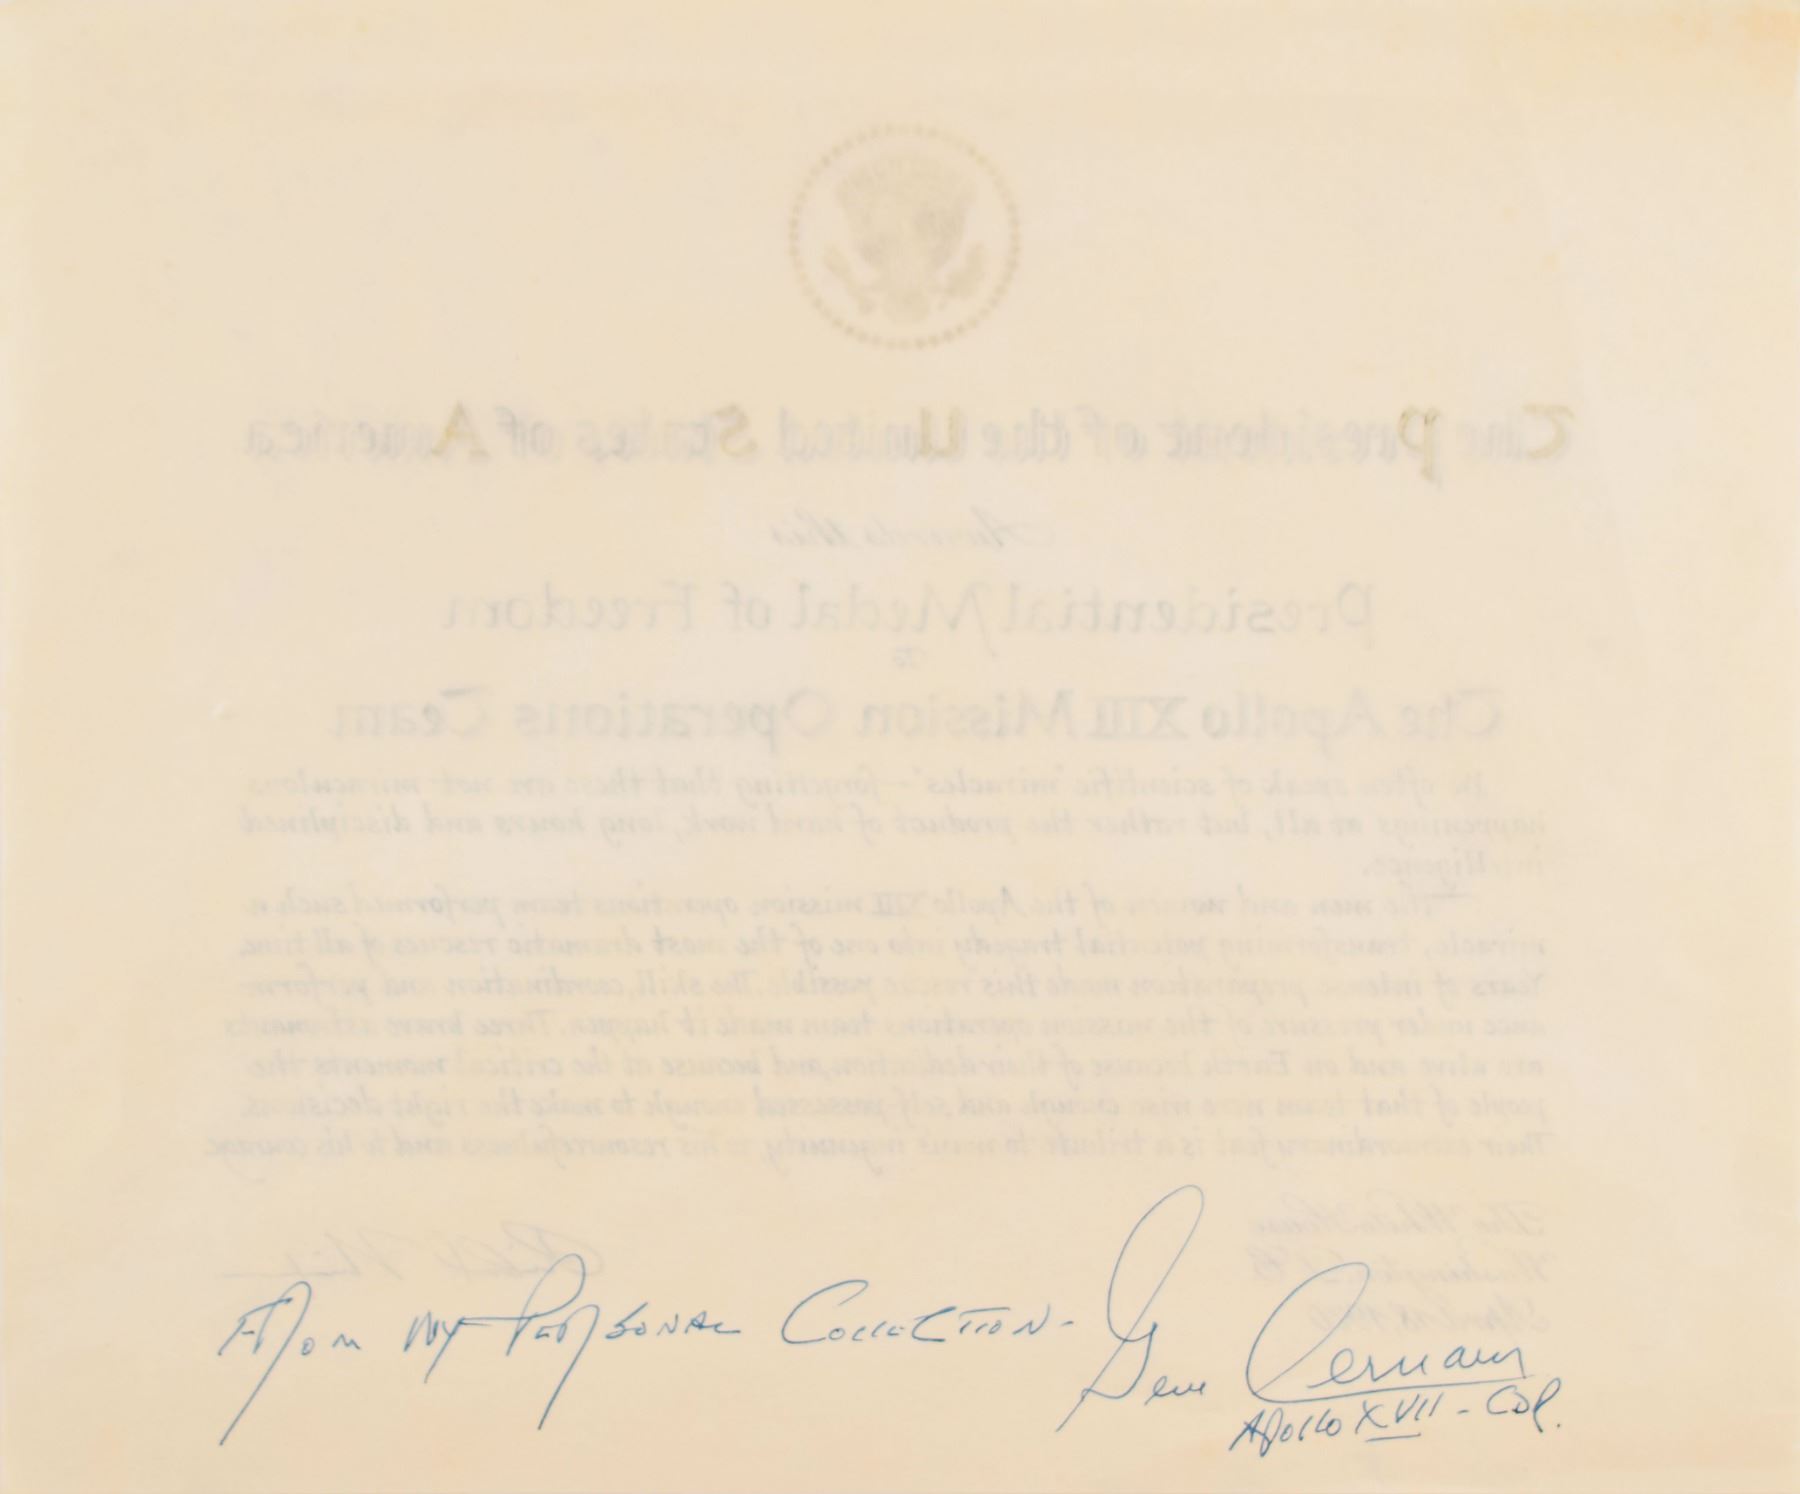 The President of the United States of America
Awards this
Presidential Medal of Freedom
To
The Apollo XIII Mission Operations Team
We often speak of scientific "miracles" – forgetting that these are not miraculous
happenings at all, but rather the product of hard work, long hours and disciplined
intelligence.
The men and women of the Apollo XIII mission operations team performed such a
miracle, transforming potential tragedy into one of the most dramatic rescues of all time.
Years of intense preparation made this rescue possible. The skill, coordination and perform-
ance under pressure of the mission operations team made it happen. Three brave astronauts
are alive and on Earth because of their dedication, and because at the critical moments the
people of that team were wise enough and self-possessed enough to make the right decisions.
Their extraordinary feat is a tribute to man's ingenuity, to his resourcefulness and to his courage.
The White House
Washington, D.C.
April 18, 1970
Richard Nixon
From my Personal Collection-
Gene Cernan
Apollo XVII - CDR.